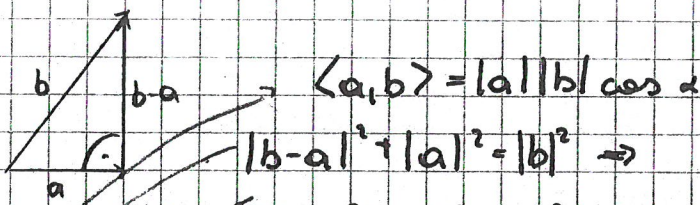 b
b-a
a
⟨a,b⟩ = |a||b| cos α
|b-a|² + |a|² = |b|² ⇒